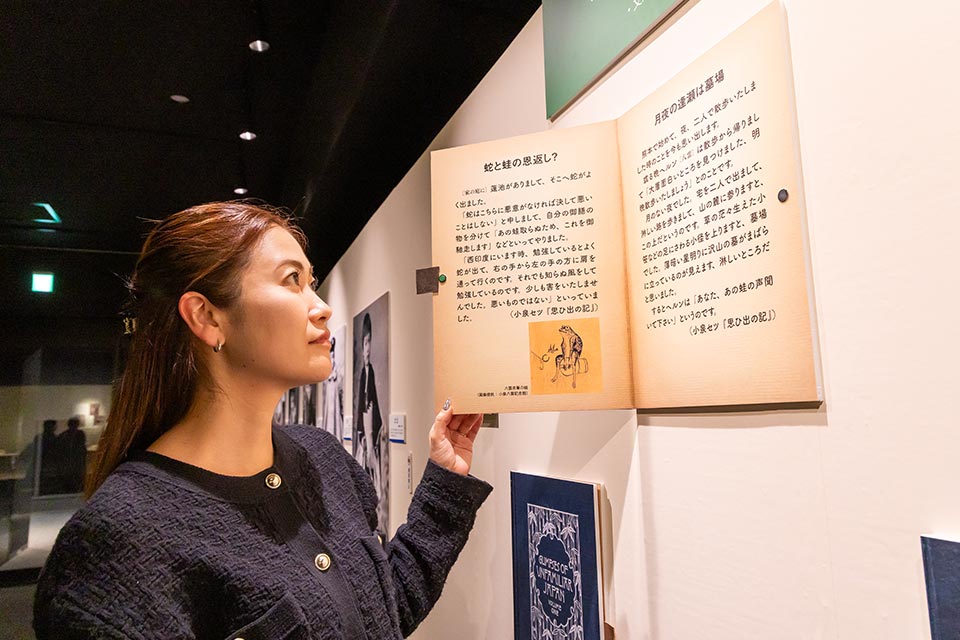 蛇と蛙の恩返し?
[家の庭に]蓮池がありまして、そこへ蛇がよ
く出ました。
「蛇はこちらに悪意がなければ決して悪い
ことはしない」と申しまして、自分の御膳の
物を分けて「あの蛙取らぬため、これを御
馳走します」などといってやりました。
「西印度にいます時、勉強しているとよく
蛇が出て、右の手から左の手の方に肩を
通って行くのです。それでも知らぬ風をして
勉強しているのです。少しも害をいたしませ
んでした。悪いものではない」といっていま
した。
(小泉セツ『思ひ出の記』)
八雲直筆の蛙
(画像提供:小泉八雲記念館)
月夜の逢瀬は墓場
熊本で始めて、夜、二人で散歩いたしま
した時のことを今も思い出します。
或る晩ヘルン(八雲)は散歩から帰りまし
て「大層面白いところを見つけました、明
晩散歩いたしましょう」とのことです。
月のない夜でした。宅を二人で出まして、
淋しい路を歩きまして、山の麓に参りますと、
この上だというのです。草の茫々生えた小
笹などの足にさわる小径を上りますと、墓場
でした。薄暗い星明りに沢山の墓がまばら
に立っているのが見えます、淋しいところだ
と思いました。
するとヘルンは「あなた、あの蛙の声聞
いて下さい」というのです。
(小泉セツ『思ひ出の記』)
GLIMPSES OF
UNFAMILIAR
JAPAN
VOLUME
ONE